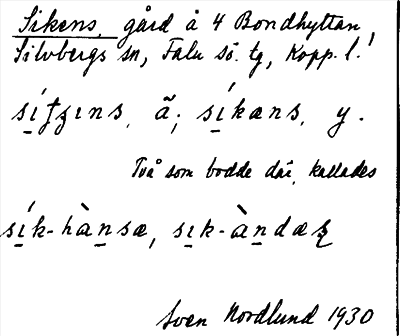 Sikens gård å 4 Bondhyttan,
Silvbergs sn, Falu sö. tg, Kopp. l.
síʈʂens, ã; síkans, y.
Två som bodde där, kallades
sík-hànsæ, sık-àndæʂ
Sven Nordlund 1930